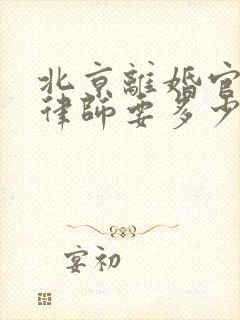 北京離婚官
律師要多少
宴初